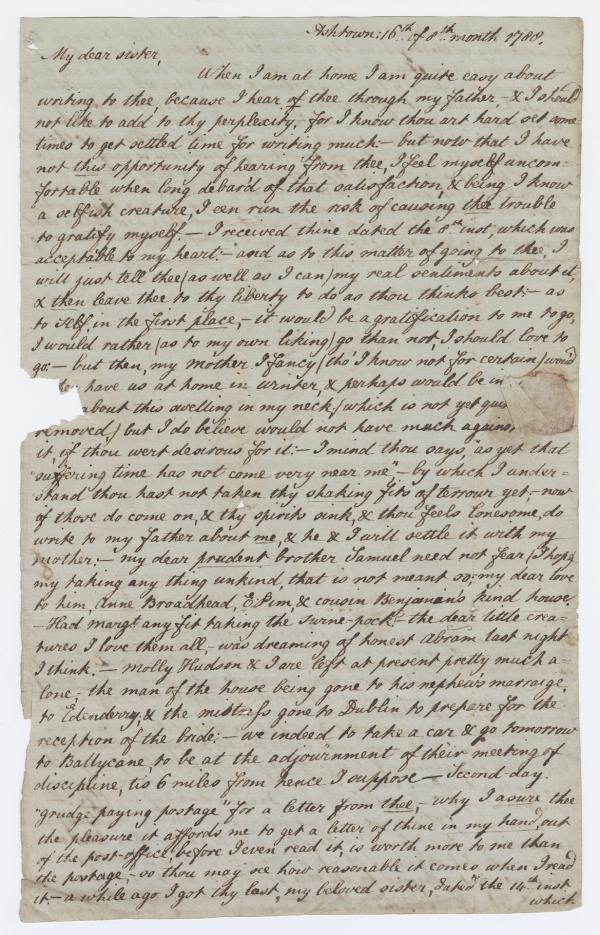 Ashtown: 16th of 8th month 1788.
My dear sister,
When I am at home I am quite easy about
writing to thee, because I hear of thee through my father, & I should
not like to add to thy perplexity, for I know thou art hard set some-
times to get settled time for writing much - but now that I have
not this opportunity of hearing from thee, I feel myself uncom-
fortable when long debard of that satisfaction, & being I know
a selfish creature, I een run the risk of causing thee trouble
to gratify myself. - I received thine dated the 8th inst. which was
acceptable to my heart: - and as to this matter of going to thee, I
will just tell thee (as well as I can) my real sentiments about it,
& then leave thee to thy liberty to do as thou thinks best: - as
to self, in the first place, - it would be a gratification to me to go,
I would rather (as to my own liking) go than not, I should love to
go: - but then, my Mother I fancy (tho' I know not for certain) woud
have us at home in winter, & perhaps would be in
about this swelling in my neck (which is not yet
removed,) but I do believe would not have much
it, if thou wert desirous for it: - I mind thou says, "as yet that
"suffering time has not come very near me" - by which I under-
stand thou hast not taken thy shaking fits of terrour yet; - now
if those do come on, & thy spirits sink, & thou feels lonesome, do
write to my father about me, & he & I will settle it with my
mother: - my dear prudent brother Samuel need not fear (I hope)
my taking any thing unkind, that is not meant so; my dear love
to him, Anne Broadhead, E Pim, & cousin Benjamin's kind house.
- Had Margt. any fit taking the surne-pock - the dear little crea-
tures I love them all, - was dreaming of honest Abram last night
I think. - Molly Hudson & I are left at present pretty much a-
lone; the man of the house being gone to his nephew's marraige,
to Edenderry, & the mistress gone to Dublin to prepare for the
reception of the bride: - we indeed to take a car & go tomorrow
to Ballycane, to be at the adjournment of their meeting of
discipline, tis 6 miles from hence I suppose - Second-day.
"grudge paying postage" for a letter from thee, - why I assure thee
the pleasure it affords me to get a letter of thine in my hand, out
of the post-office, before I even read it, is worth more to me than
the postage, - so thou may see how reasonable it comes when I read
it - a while ago I got thy last, my beloved sister, dated the 14th inst.
which